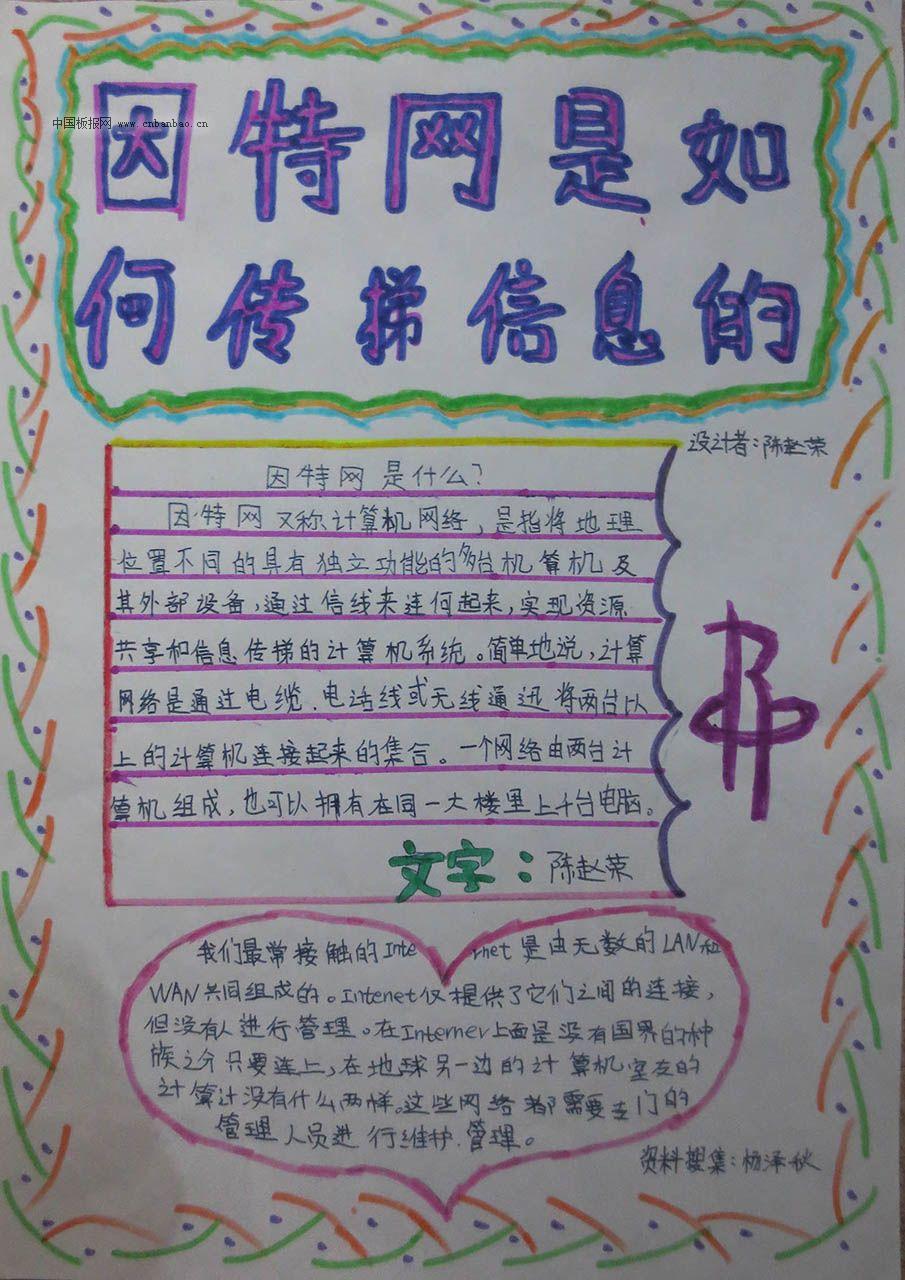 中国板报网 www.cnbanbao.cn
因特网是如
何传递信息的
设计者：陈赵荣
因特网是什么？
因特网又称计算机网络，是指将地理
位置不同的具有独立功能的多台机算机及
其外部设备，通过信线来连何起来，实现资源
共享和信息传梯的计算机系统。简单地说，计算
网络是通过电缆．电话线或无线通迅将两台以
上的计算机连接起来的集合。一个网络由两台计
算机组成，也可以拥有在同一大楼里上千台电脑。
文字：陈赵荣
我们最常接触的Inte rnet是由无数的LAN和
WAN共同组成的。Intenet仅提供了它们之间的连接，
但没有人进行管理。在Interner上面是没有国界的种
族之分只要连上，在地球另一边的计算机室友的
计算计没有什么两样。这些网络者都需要专门的
管理人员进行维护．管理。
资料搜集：杨泽秋